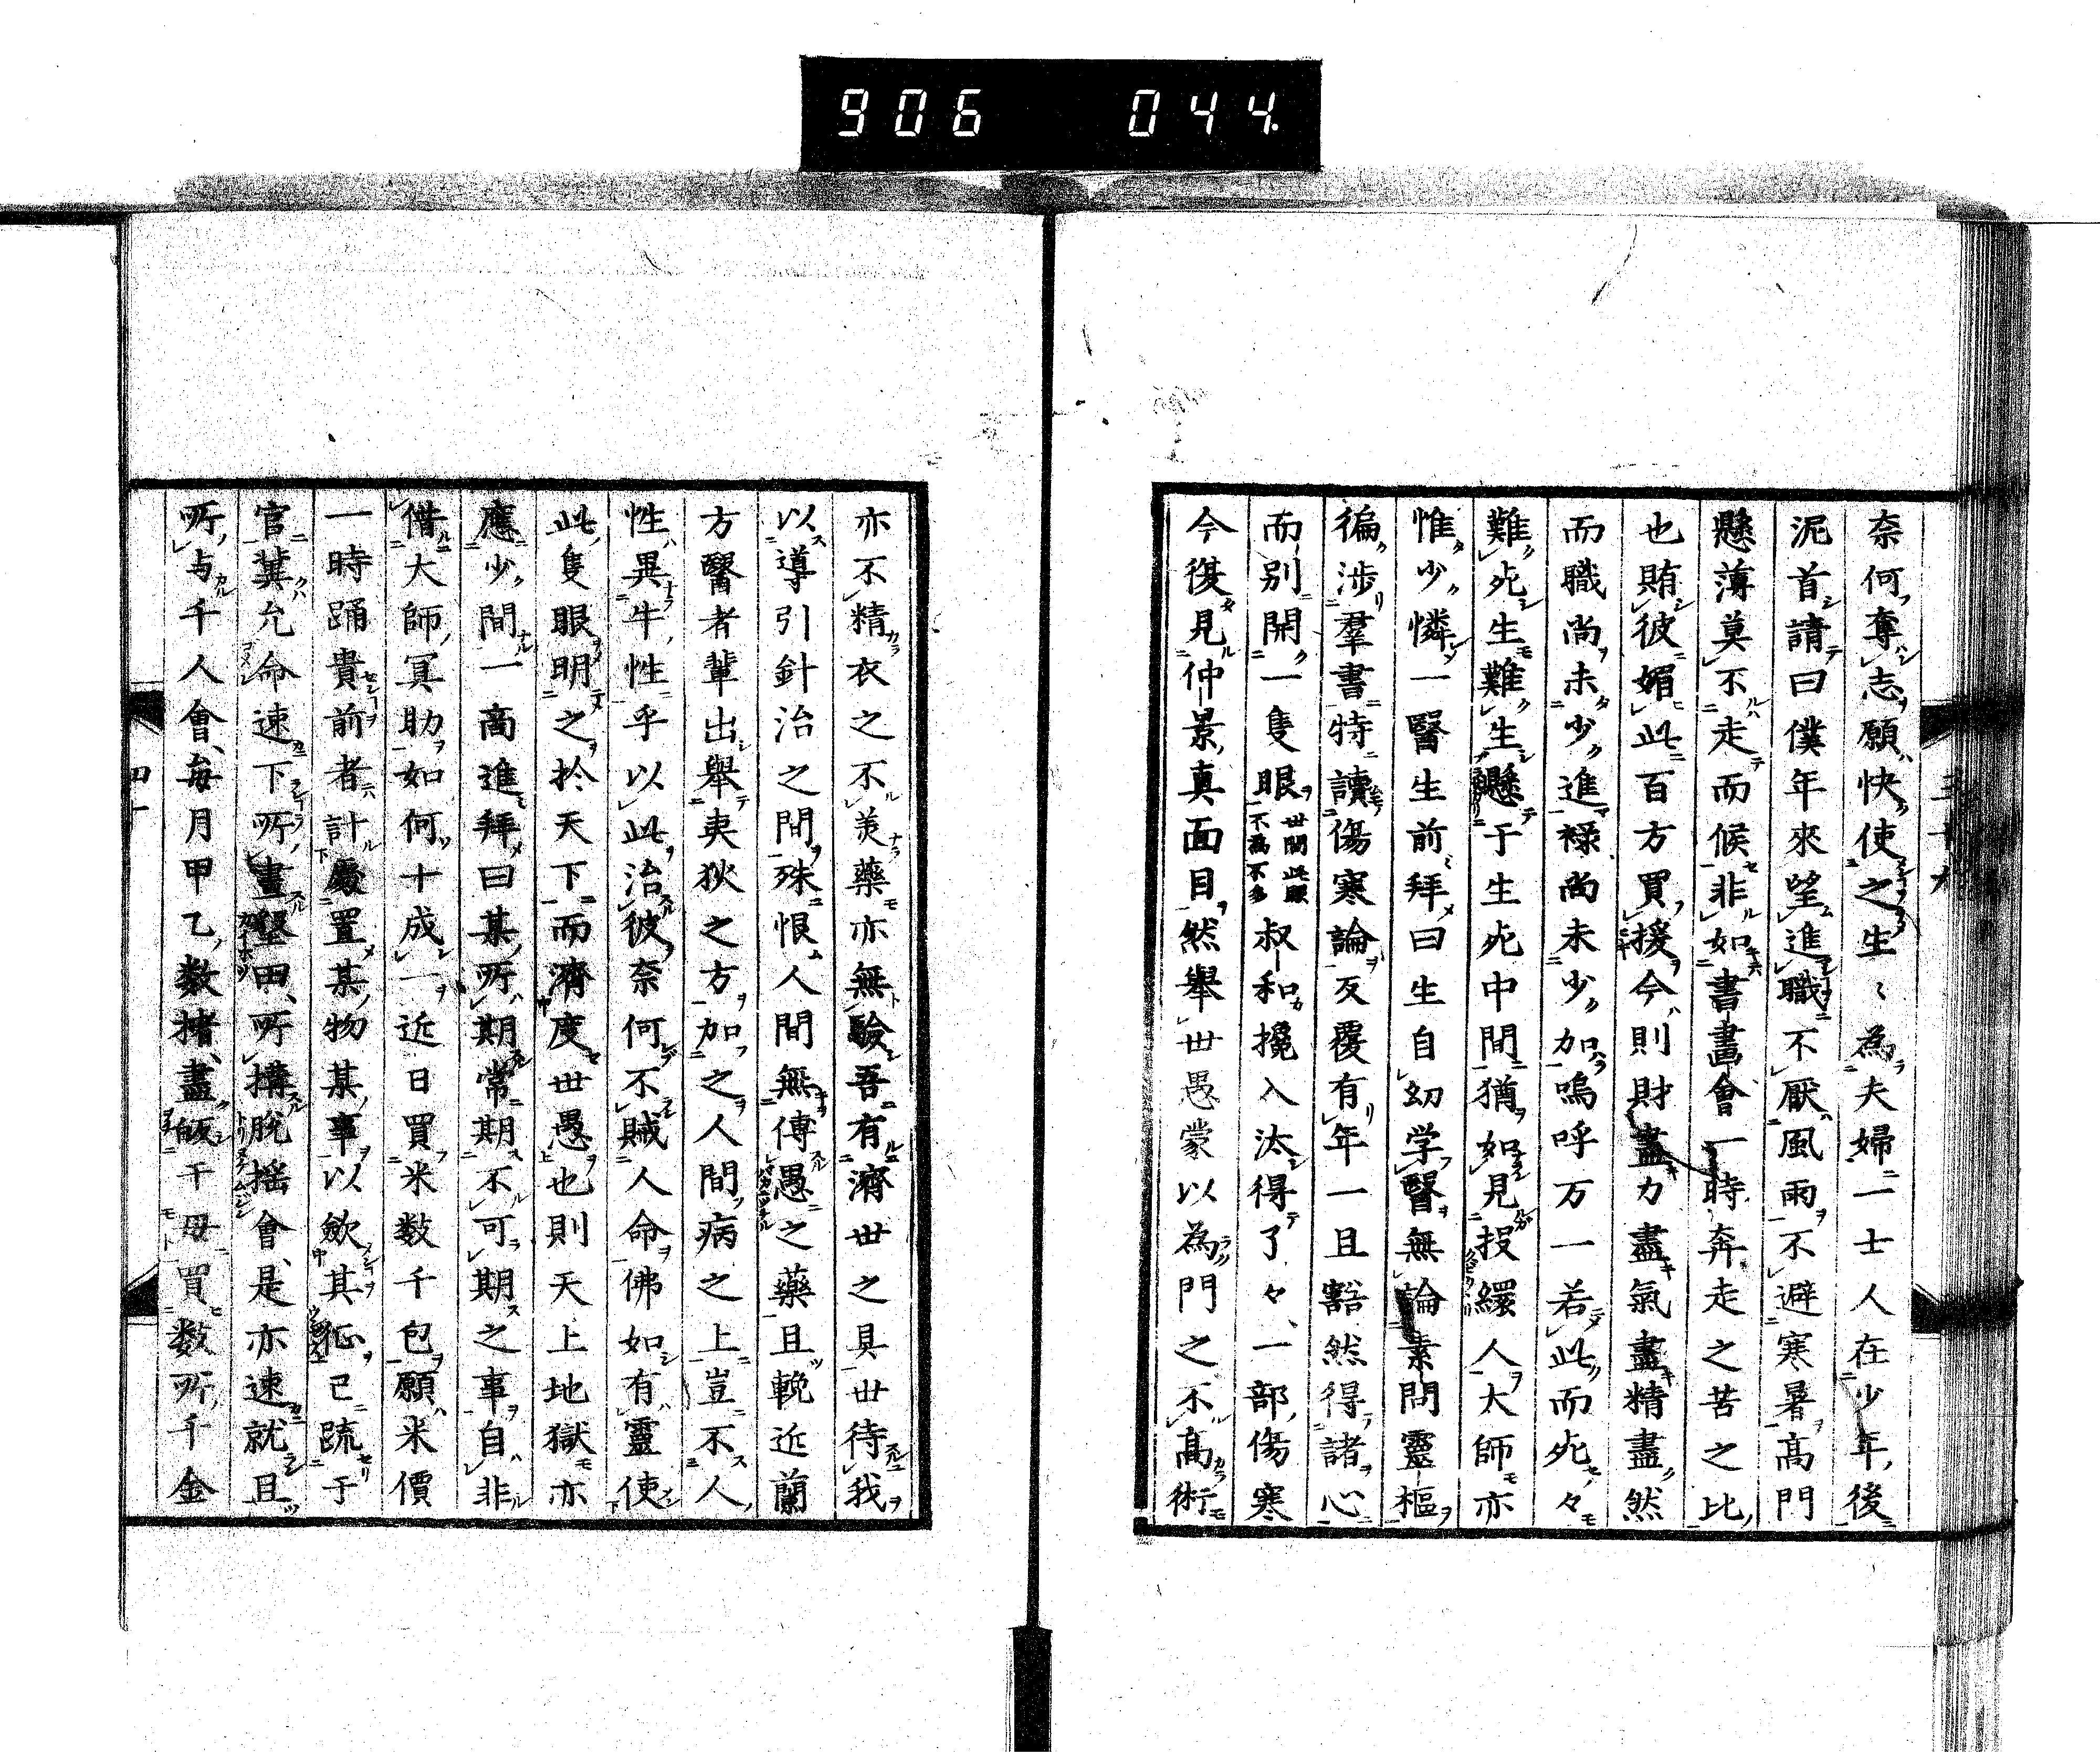 906 044
奈何奪志願快使之生〻為夫婦一士人在少年後
泥首請曰僕年來望進職不厭風雨不避寒暑高門
懸薄莫不走而候非如書畫會一時奔走之苦之比
也賄彼媚此百方買援今則財盡力盡氣盡精盡然
而職尚未少進祿尚未少加嗚呼万一若此而死々
難死生難生懸于生死中間猶如見投繯人大師亦
惟少憐一醫生前拜曰生自幼学醫無論素問靈樞
徧涉羣書特讀傷寒論反覆有年一旦豁然得諸心
而別開一隻眼世間此眼不為不多叔和攙入汰得了々一部傷寒
今復見仲景真面目然舉世愚蒙以為門之不高術
亦不精衣之不美藥亦無驗吾有濟世之具世待我
以導引針治之間殊恨人間無傳愚之藥且輓近蘭
方醫者輩出舉夷狄之方加之人間病之上豈不人
性異牛性乎以此治彼奈何不賊人命佛如有靈使
此隻眼明之於天下而濟度世愚也則天上地獄亦
應少間一商進拜曰某所期常期不可期之事自非
借大師冥助如何十成一近日買米数千包願米價
一時踊貴前者計處置某物某事以斂其
已疏于
官冀允命速下所畫墾田所搆脫摇會是亦速就且
所与千人會每月甲乙数㨋盡皈干毋買数所千金
三十九
四十